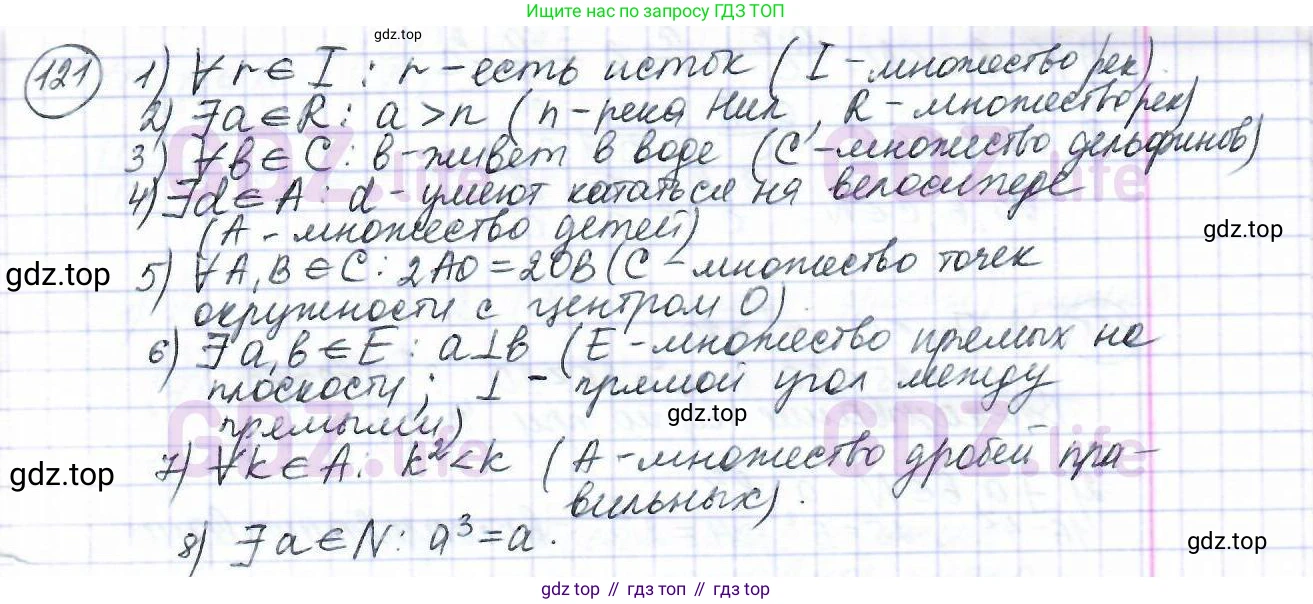 Ищите нас по запросу ГДЗ ТОП
gdz.top
121 1) ∀ r ∈ I : r - есть исток (I - множество рек)
2) ∃ a ∈ R : a > n (n - река Нил, R - множество рек)
3) ∀ в ∈ C : в - живёт в воде (C - множество дельфинов)
4) ∃ d ∈ A : d - умеют кататься на велосипеде
(A - множество детей)
gdz.top
gdz.top
5) ∀ A, B ∈ C : 2AO = 2OB (C - множество точек
окружности с центром O)
6) ∃ a, в ∈ E : a ⊥ в (E - множество прямых на
плоскости; ⊥ - прямой угол между
прямыми)
gdz.top
gdz.top
7) ∀ k ∈ A : k² < k (A - множество дробей пра-
вильных).
8) ∃ a ∈ N : a³ = a.
gdz.top
GDZ.life
GDZ.life
GDZ.life
GDZ.life
gdz top // гдз топ // gdz top